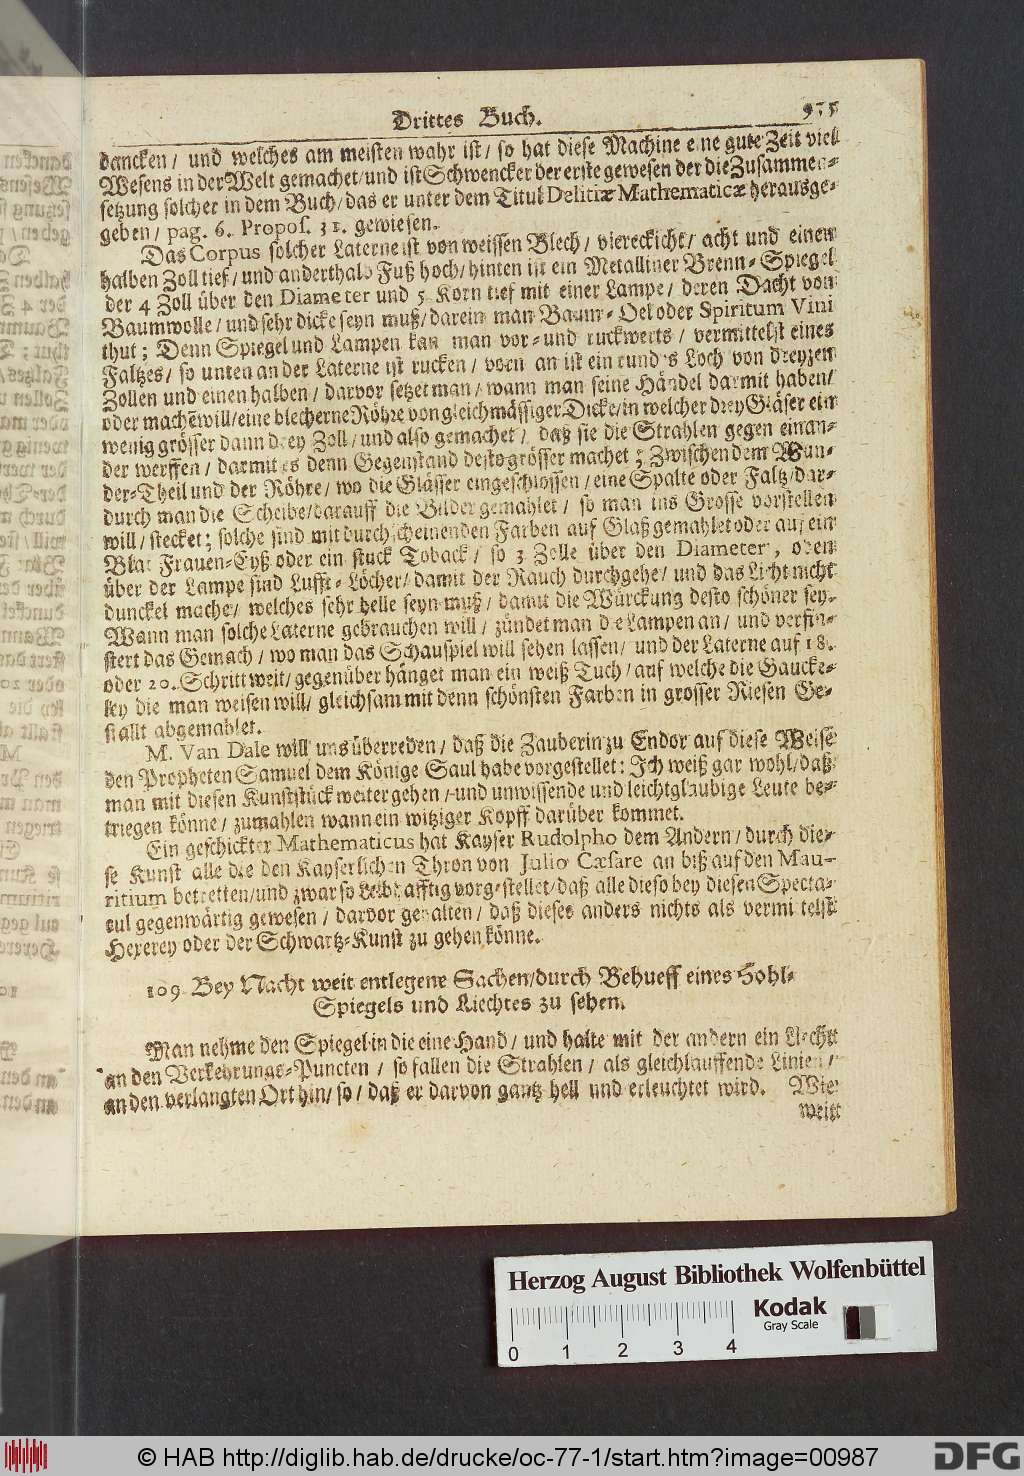 Drittes Buch. 975
dencken / und welches am meisten wahr ist / so hat diese Machine eine gute Zeit viel
Wesens in der Welt gemachet / und ist Schwencker der erste gewesen der die Zusammen-
setzung solcher in dem Buch / das er unter dem Titul Delitiæ Mathematicæ herausge-
geben / pag. 6. Propos. 31. gewiesen.
Das Corpus solcher Laterne ist von weissen Blech / viereckicht / acht und einen
halben Zoll tief / und anderthalb Fuß hoch / hinten ist ein Metalliner Brenn-Spiegel
der 4 Zoll über den Diameter und 5 Korn tief mit einer Lampe / deren Dacht von
Baumwolle / und sehr dicke seyn muß / darein man Baum-Oel oder Spiritum Vini
thut ; Denn Spiegel und Lampen kan man vor- und ruckwerts / vermittelst eines
Faltzes / so unten an der Laterne ist rucken / vorn an ist ein rundes Loch von dreyzen
Zollen und einen halben / darvor setzet man / wann man seine Händel darmit haben /
oder machē will / eine blecherne Röhre von gleichmässiger Dicke / in welcher drey Gläser ein
wenig grösser dann drey Zoll / und also gemachet / daß sie die Strahlen gegen einan-
der werffen / darmit es denn Gegenstand desto grösser machet ; Zwischen dem Wun-
der-Theil und der Röhre / wo die Glässer eingeschlossen / eine Spalte oder Faltz / dar-
durch man die Scheibe / darauff die Bilder gemahlet / so man ins Grosse vorstellen
will / stecket ; solche sind mit durchscheinenden Farben auf Glaß gemahlet oder auf ein
Blat Frauen-Eyß oder ein stuck Toback / so 3 Zolle über den Diameter , oben
über der Lampe sind Lufft-Löcher / damit der Rauch durchgehe / und das Licht nicht
dunckel mache / welches sehr helle seyn muß / damit die Würckung desto schöner sey.
Wann man solche Laterne gebrauchen will / zündet man die Lampen an / und verfin-
stert das Gemach / wo man das Schauspiel will sehen lassen / und der Laterne auf 18.
oder 20. Schritt weit / gegenüber hänget man ein weiß Tuch / auf welche die Gaucke-
ley die man weisen will / gleichsam mit denn schönsten Farben in grosser Riesen Ge-
stallt abgemahlet.
M. Van Dale will uns überreden / daß die Zauberin zu Endor auf diese Weise
den Propheten Samuel dem Könige Saul habe vorgestellet : Ich weiß gar wohl / daß
man mit diesen Kunststück weiter gehen / und unwissende und leichtglaubige Leute be-
triegen könne / zumahlen wann ein witziger Kopff darüber kommet.
Ein geschickter Mathematicus hat Kayser Rudolpho dem Andern / durch die-
se Kunst alle die den Kayserlichen Thron von Julio Cæsare an biß auf den Mau-
ritium betretten / und zwar so Leibhafftig vorgestellet / daß alle die so bey diesen Specta-
cul gegenwärtig gewesen / darvor gehalten / daß dieses anders nichts als vermittelst
Hexerey oder der Schwartz-Kunst zu gehen könne.
109. Bey Nacht weit entlegene Sachen / durch Behueff eines Hohl-
Spiegels und Liechtes zu sehen.
Man nehme den Spiegel in die eine Hand / und halte mit der andern ein Liecht
an den Verkehrungs-Puncten / so fallen die Strahlen / als gleichlauffende Linien /
an den verlangten Ort hin / so / daß er darvon gantz hell und erleuchtet wird. Wie
weit
Herzog August Bibliothek Wolfenbüttel
Kodak
Gray Scale
0 1 2 3 4
© HAB http://diglib.hab.de/drucke/oc-77-1/start.htm?image=00987
DFG